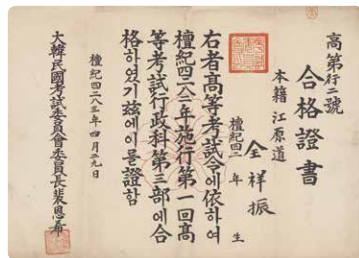 高第行二號
合格證書
本籍 江原道
全祥振
檀紀四二 年 生
右者髙等考試令에依하여
檀紀四二八二年施行第一回高
等考試行政科第三部에合
格하였기玆에이를證함
檀紀四二八三年 四月 二九日
大韓民國考試委員會委員長 裴恩希